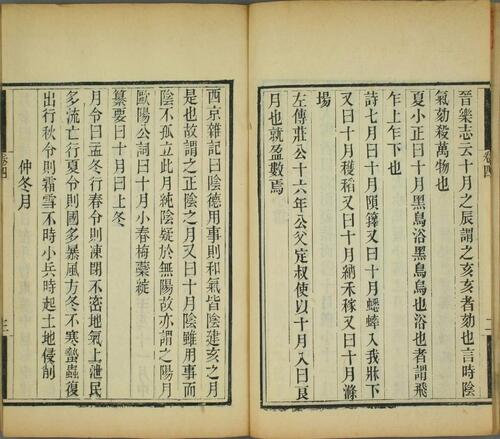 晉樂志云十月之辰謂之亥亥者劾也言時陰
氣劾殺萬物也
夏小正曰十月黑鳥浴黑鳥烏也浴也者謂飛
乍上乍下也
詩七月曰十月隕籜又曰十月蟋蟀入我牀下
又曰十月穫稻又曰十月納禾稼又曰十月滌
場
左傳莊公十六年公父定叔使以十月入曰良
月也就盈數焉
卷四
二
西京雜記曰陰德用事則和氣皆陰建亥之月
是也故謂之正陰之月又曰十月陰雖用事而
陰不孤立此月純陰疑於無陽故亦謂之陽月
歐陽公詞曰十月小春梅蕚綻
纂要曰十月曰上冬
月令曰孟冬行春令則凍閉不密地氣上泄民
多流亡行夏令則國多暴風方冬不寒蟄蟲復
出行秋令則霜雪不時小兵時起土地侵削
仲冬月
卷四
三